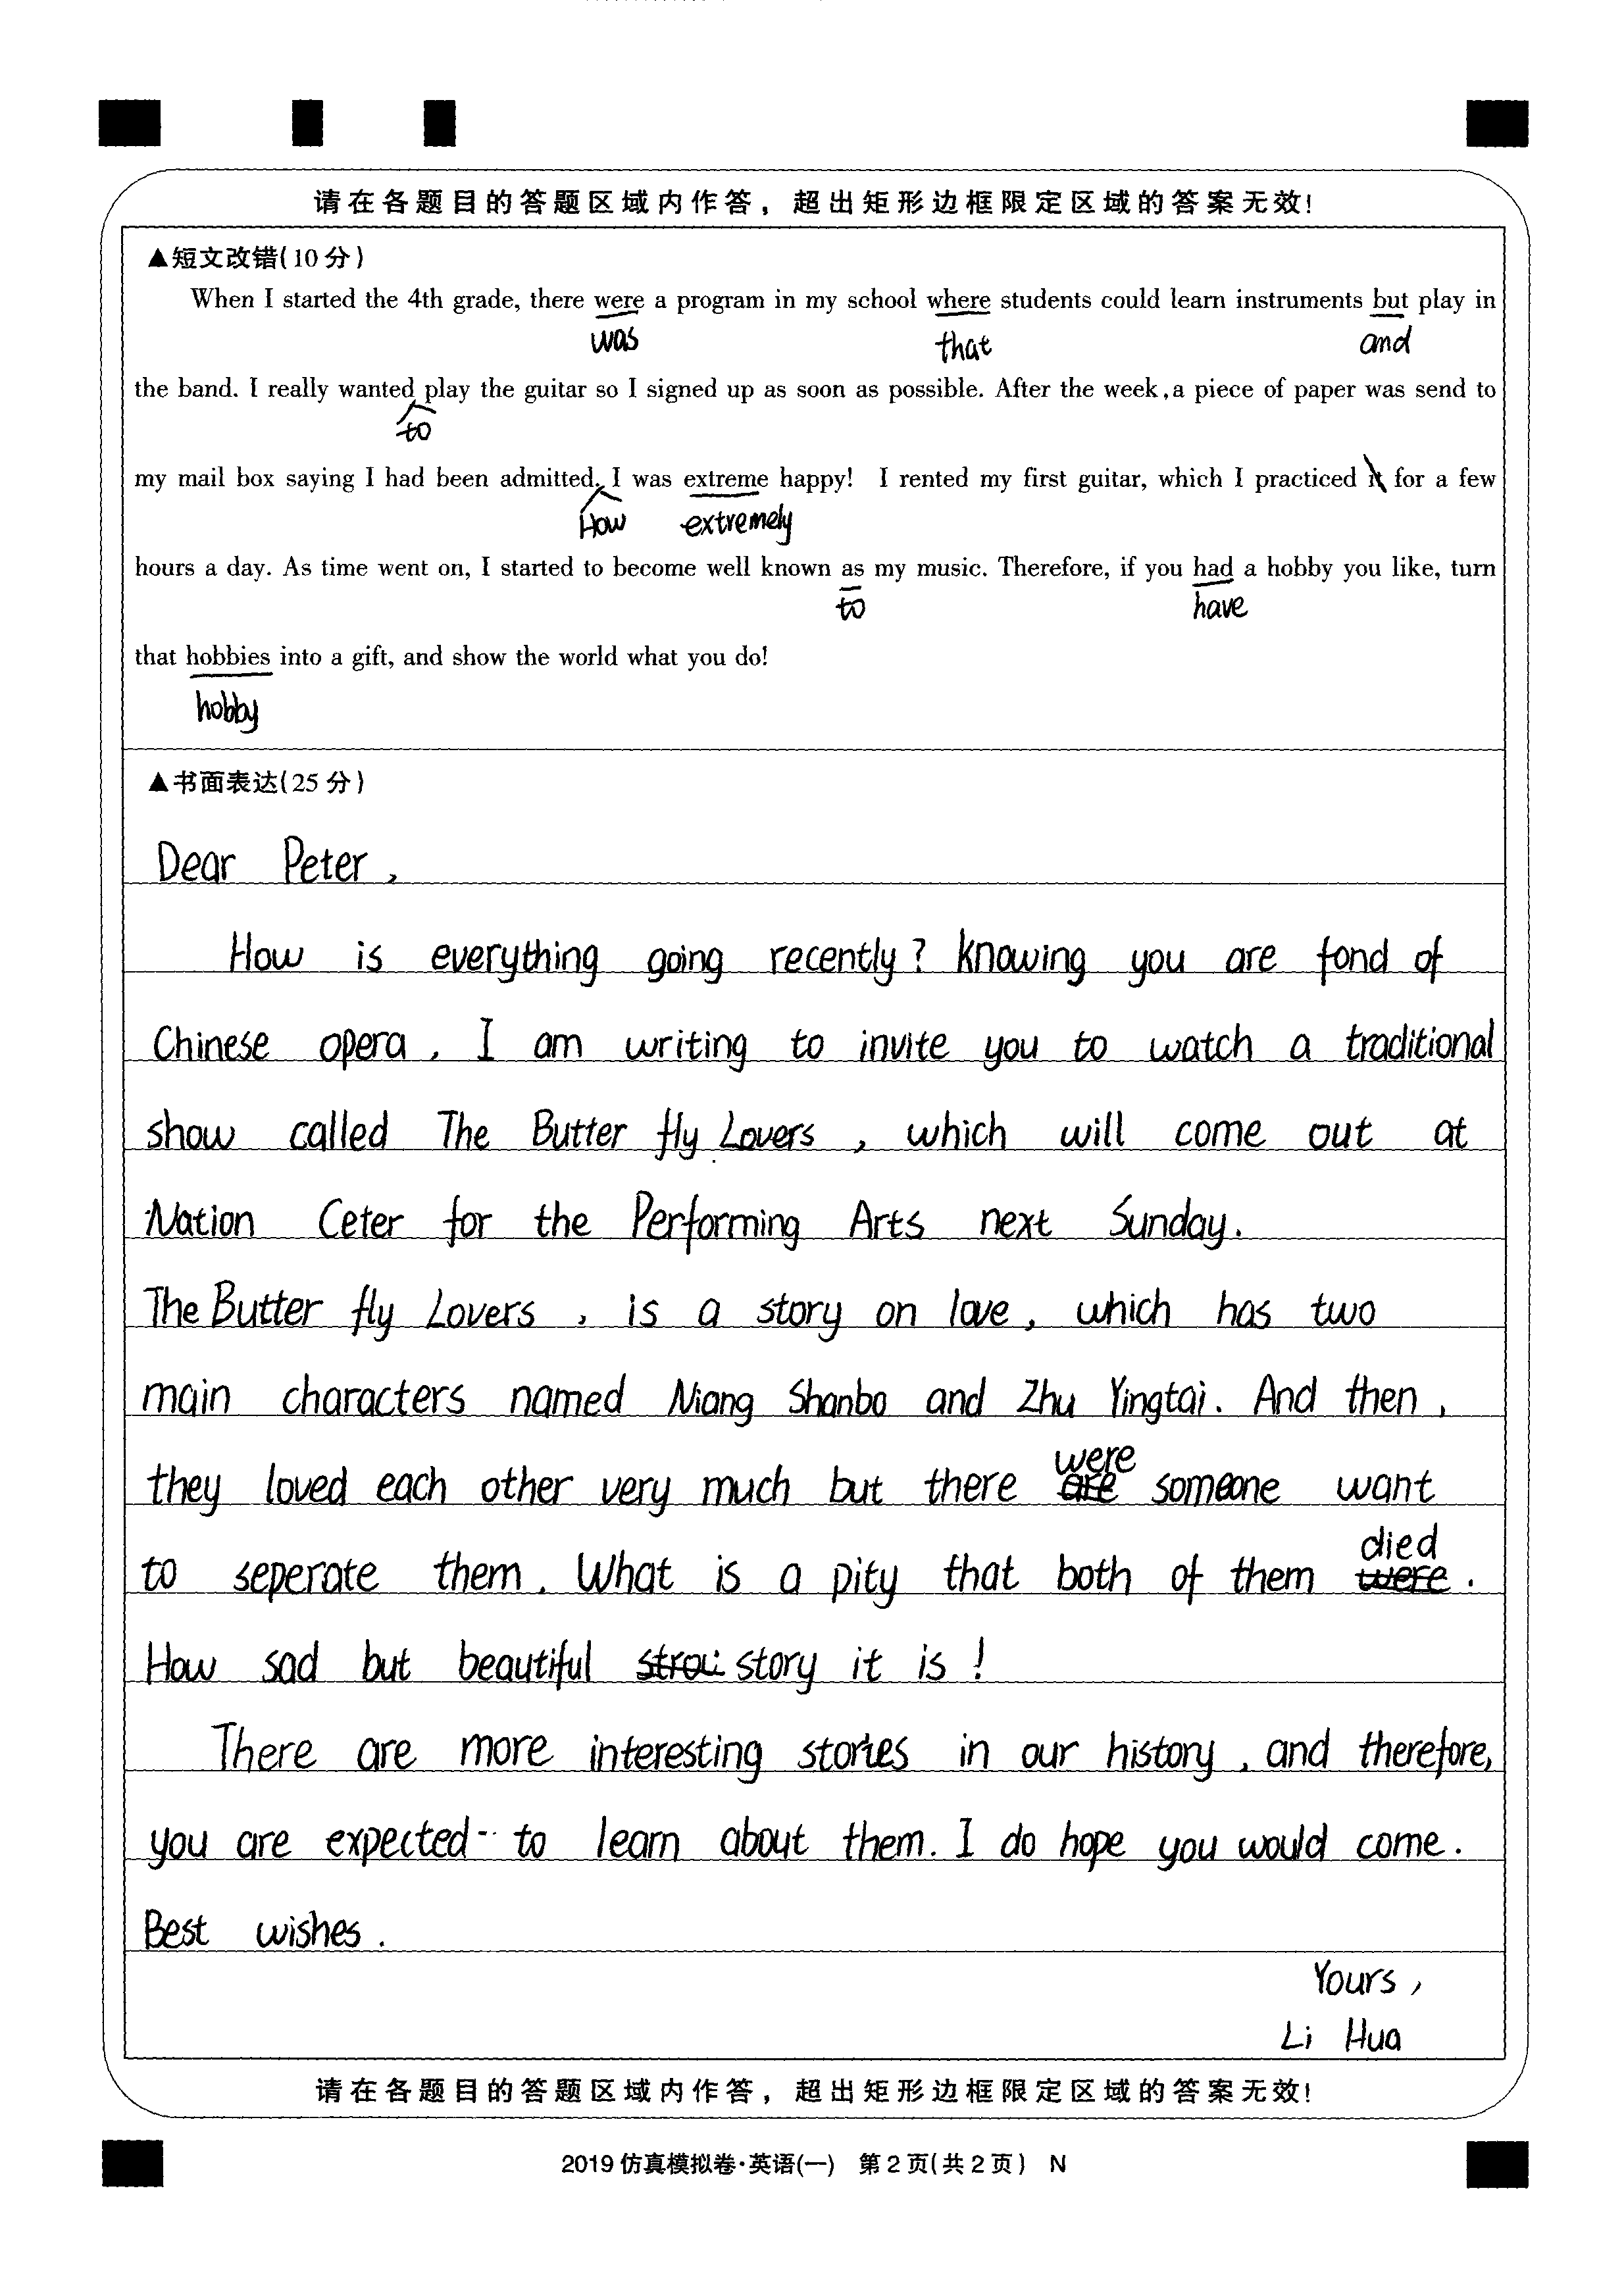 请在各题目的答题区域内作答，超出矩形边框限定区域的答案无效!
▲短文改错(10分)
When I started the 4th grade, there were a program in my school where students could learn instruments but play in
was that and
the band. I really wanted play the guitar so I signed up as soon as possible. After the week, a piece of paper was send to
to
my mail box saying I had been admitted. I was extreme happy! I rented my first guitar, which I practiced it for a few
How extremely
hours a day. As time went on, I started to become well known as my music. Therefore, if you had a hobby you like, turn
to have
that hobbies into a gift, and show the world what you do!
hobby
▲书面表达(25分)
Dear Peter,
How is everything going recently? Knowing you are fond of
Chinese opera, I am writing to invite you to watch a traditional
show called The Butter fly Lovers, which will come out at
Nation Ceter for the Performing Arts next Sunday.
The Butter fly Lovers, is a story on love, which has two
main characters named Niang Shanbo and Zhu Yingtai. And then,
were
they loved each other very much but there are someone want
died
to seperate them. What is a pity that both of them were.
How sad but beautiful story it is!
There are more interesting stories in our history, and therefore,
you are expected to learn about them. I do hope you would come.
Best wishes.
Yours,
Li Hua
请在各题目的答题区域内作答，超出矩形边框限定区域的答案无效!
2019仿真模拟卷·英语(一) 第2页(共2页) N